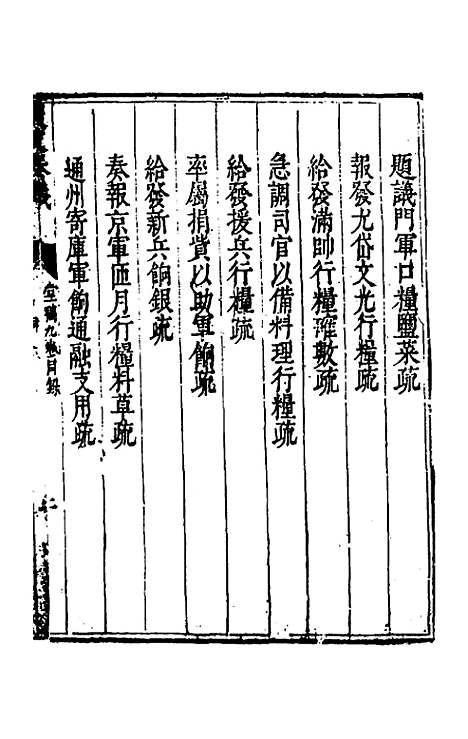 題議門軍口糧鹽菜疏
報發尤岱文光行糧疏
給發滿帥行糧確數疏
急調司官以備料理行糧疏
給發援兵行糧疏
率屬捐貲以助軍餉疏
給發新兵餉銀疏
奏報京軍匝月行糧料草疏
通州寄庫軍餉通融支用疏
堂稿九卷目錄